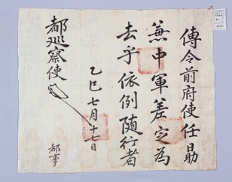 傳令前府使任勗
兼中軍差定為
去乎依例隨行者
乙巳七月十七日
都巡察使
都事